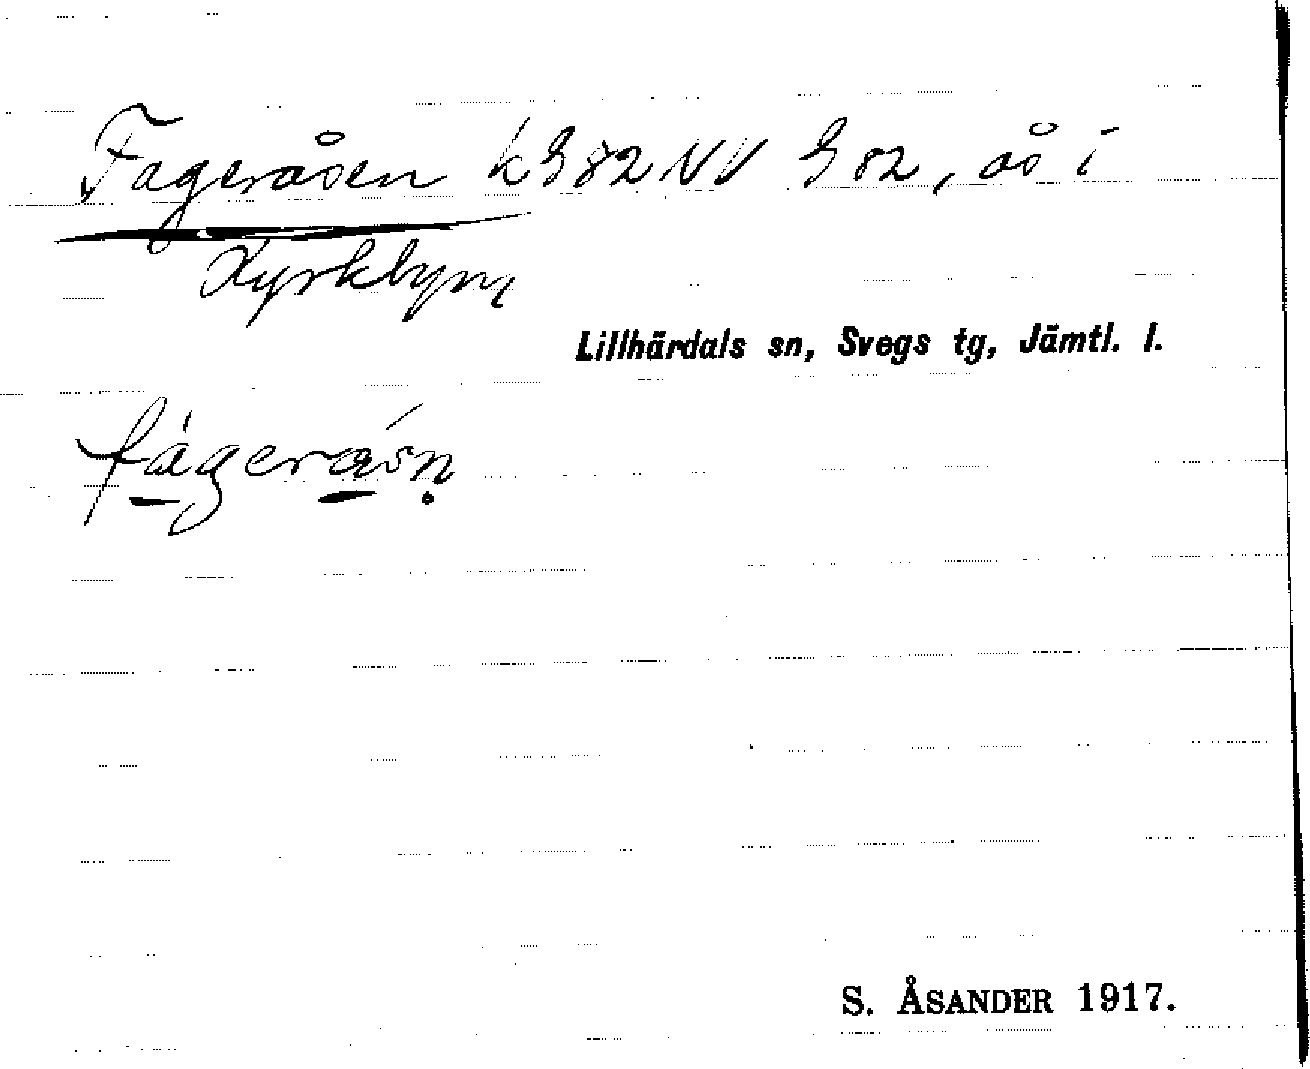 Fageråsen k G 82 NV G 82, ås i
Kyrkbyn
Lillhärdals sn, Svegs tg, Jämtl. l.
fàgeråsn̥
S. ÅSANDER 1917.